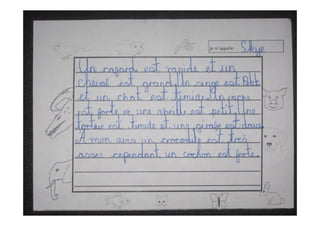 je m'appelle Skye
Un canard est rapide et un
cheval est grand. Un singe est Petit
et un chat est timide. Un lapin
est forte et une abeille est petit. Une
tortue est timide et une girafe est doux.
A mon avis un crocodile est très
assez cependant un cochon est forte.